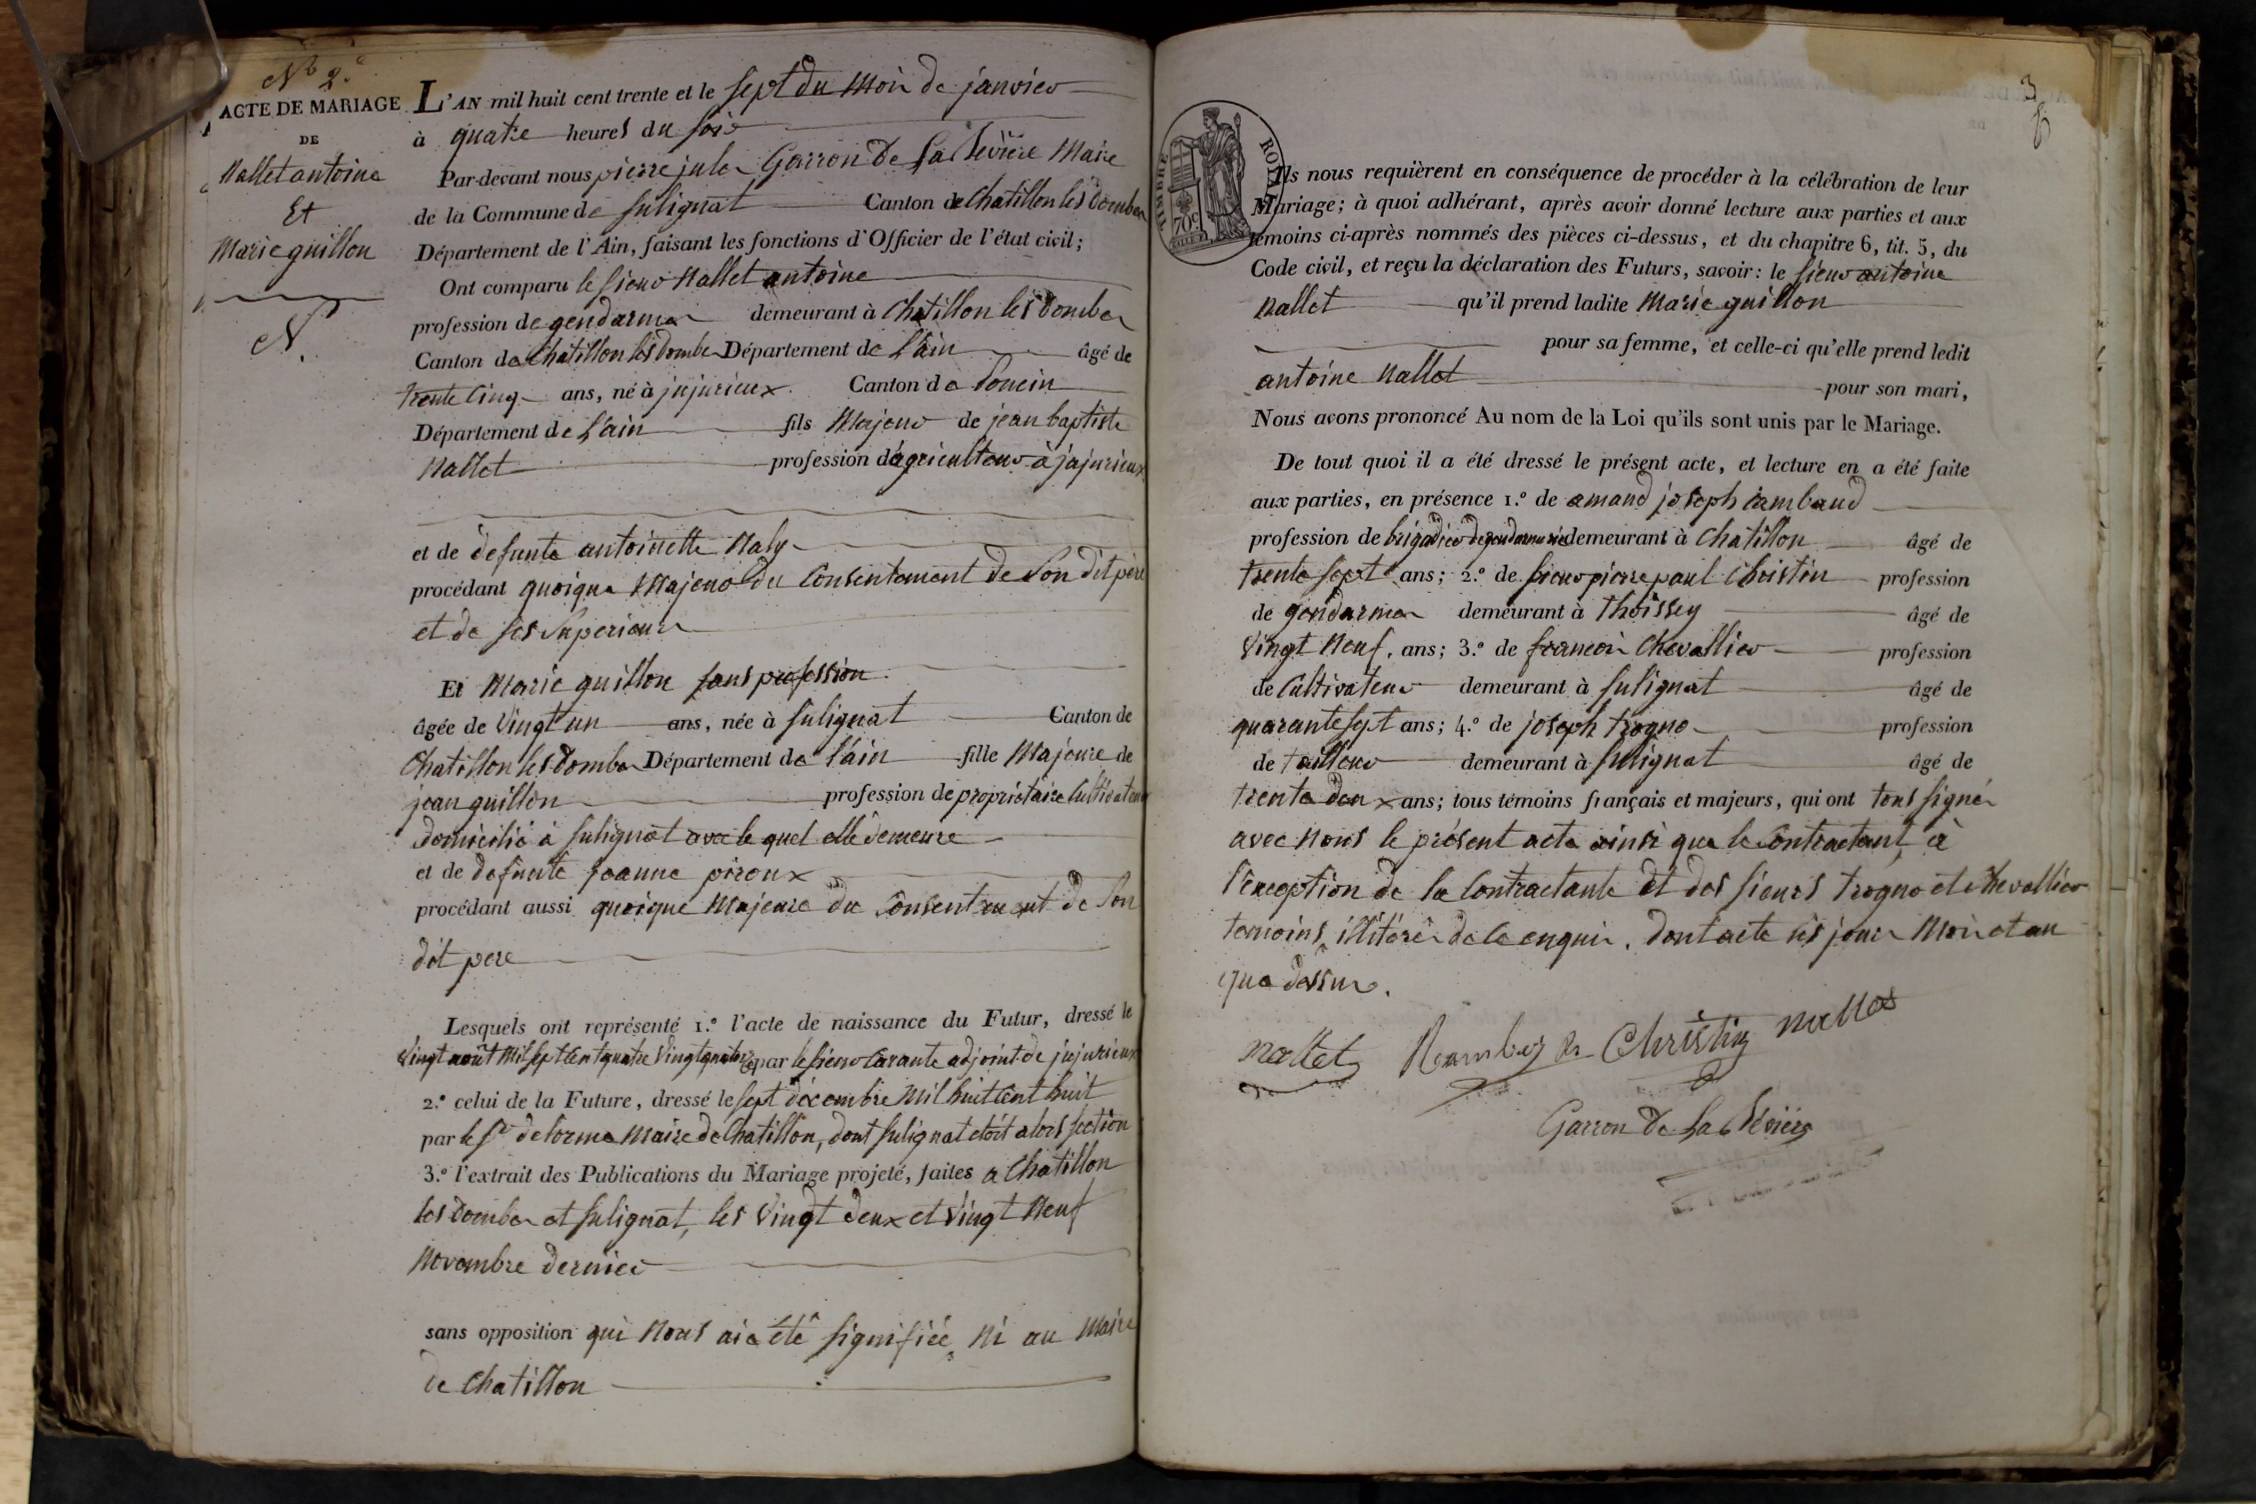 N° 2.e
ACTE DE MARIAGE
DE
Nallet antoine
Et
Marie guillon
N.
L'AN mil huit cent trente et le sept du Mois de janvier
à quatre heures du soir
Par-devant nous pierre jules Garron De La Bévière Maire
de la Commune de Sulignat Canton de Chatillon les Dombes
Département de l'Ain, faisant les fonctions d'Officier de l'état civil;
Ont comparu le sieur Nallet antoine
profession de gendarmes demeurant à Chatillon les Dombes
Canton de Chatillon les Dombes Département de L'ain âgé de
trente Cinq ans, né à jujurieux. Canton de Poncin
Département de L'ain fils Majeur de jean baptiste
Nallet profession d'agriculteur à jujurieux
et de defunte antoinette Naly
procédant quoique Majeur du Consentement de Son dit père
et de ses Superieurs
Et Marie guillon sans profession
âgée de Vingt un ans, née à Sulignat Canton de
Chatillon les Dombes Département de L'ain fille Majeure de
jean guillon profession de propriétaire Cultivateur
domicilié à Sulignat avec le quel elle demeure
et de defunte jeanne piroux
procédant aussi quoique Majeure du Consentement de Son
dit pere
Lesquels ont représenté 1.° l'acte de naissance du Futur, dressé le
Vingt août Mil sept Cent quatre Vingt quatorze par le sieur Carante adjoint de jujurieux
2.° celui de la Future, dressé le sept décembre Mil huit Cent huit
par le Sr delorme Maire de Chatillon, dont Sulignat étoit alors section
3.° l'extrait des Publications du Mariage projeté, faites a Chatillon
les Dombes et Sulignat, les Vingt deux et Vingt Neuf
Novembre dernier
sans opposition qui Nous aie été signifiée, Ni au Maire
de Chatillon
3
TIMBRE ROYAL
70c
Ils nous requièrent en conséquence de procéder à la célébration de leur
Mariage; à quoi adhérant, après avoir donné lecture aux parties et aux
témoins ci-après nommés des pièces ci-dessus, et du chapitre 6, tit. 5, du
Code civil, et reçu la déclaration des Futurs, savoir: le sieur antoine
Nallet qu'il prend ladite Marie guillon
pour sa femme, et celle-ci qu'elle prend ledit
antoine Nallet pour son mari,
Nous avons prononcé Au nom de la Loi qu'ils sont unis par le Mariage.
De tout quoi il a été dressé le présent acte, et lecture en a été faite
aux parties, en présence 1.° de amand joseph rambaud
profession de brigadier de gendarmerie demeurant à Chatillon âgé de
trente sept ans; 2.° de sieur pierre paul Christin profession
de gendarmes demeurant à Thoissey âgé de
Vingt Neuf, ans; 3.° de francois Chevallier profession
de Cultivateur demeurant à Sulignat âgé de
quarante sept ans; 4.° de joseph trogno profession
de tailleur demeurant à Sulignat âgé de
trente deux ans; tous témoins français et majeurs, qui ont tous signés
avec Nous le présent acte ainsi que le Contractant, à
l'éxception de la Contractante et des sieurs trogno et Chevallier
temoins, illitérés de ce enquis. dont acte les jour Mois et an
que dessus.
Nallet Christin Nallet
Garron De La Bévière